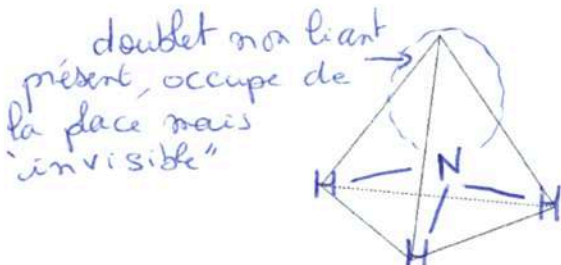 doublet non liant
présent, occupe de
la place mais
"invisible"
N
H
H
H